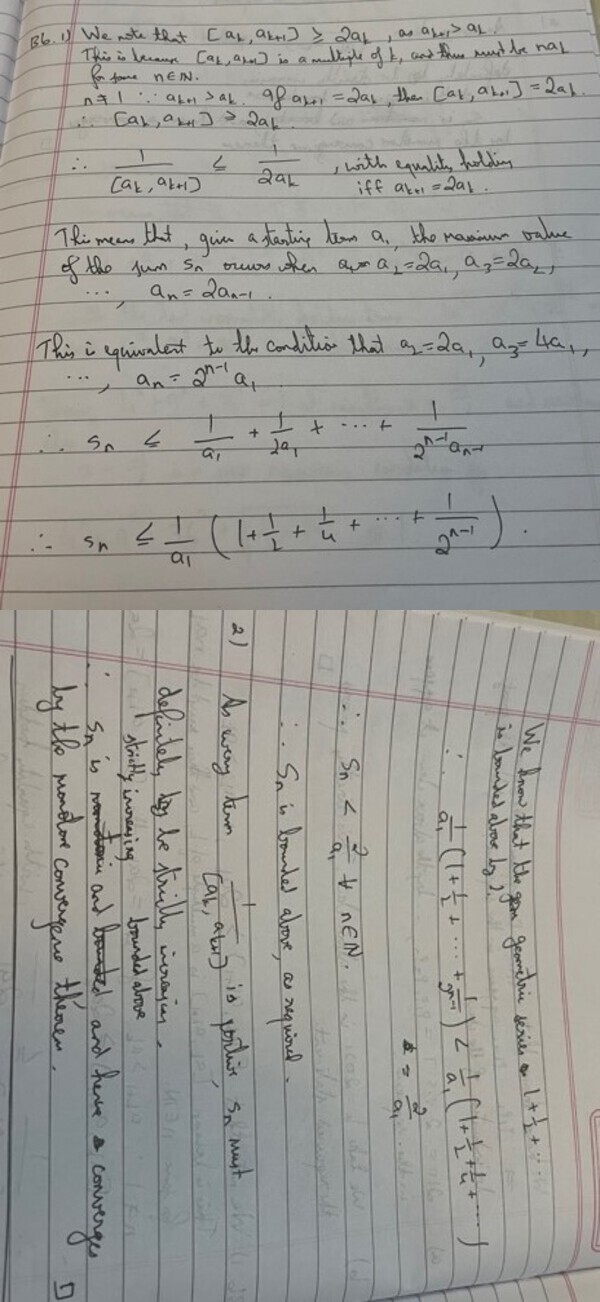 B6. 1) We note that [aₖ, aₖ₊₁] ≥ 2aₖ, as aₖ₊₁ > aₖ.
This is because [aₖ, aₖ₊₁] is a multiple of k, and thus must be naₖ
for some n∈ℕ.
n ≠ 1 ∵ aₖ₊₁ > aₖ. If aₖ₊₁ = 2aₖ, then [aₖ, aₖ₊₁] = 2aₖ.
∴ [aₖ, aₖ₊₁] ≥ 2aₖ.
∴ 1/[aₖ, aₖ₊₁] ≤ 1/2aₖ, with equality holding
iff aₖ₊₁ = 2aₖ.
This means that, given a starting term a₁, the maximum value
of the sum sₙ occurs when a₂ = 2a₁, a₃ = 2a₂,
..., aₙ = 2aₙ₋₁.
This is equivalent to the condition that a₂ = 2a₁, a₃ = 4a₁,
..., aₙ = 2ⁿ⁻¹a₁.
∴ sₙ ≤ 1/a₁ + 1/2a₁ + ... + 1/2ⁿ⁻¹aₙ₋₁
∴ sₙ ≤ 1/a₁ (1 + 1/2 + 1/4 + ... + 1/2ⁿ⁻¹).
We know that the geometric series 1 + 1/2 + ...
is bounded above by 2.
∴ 1/a₁ (1 + 1/2 + ... + 1/2ⁿ⁻¹) < 1/a₁ (1 + 1/2 + 1/4 + ...)
= 2/a₁
∴ sₙ < 2/a₁ ∀ n∈ℕ.
∴ sₙ is bounded above, as required.
2) As every term 1/[aₖ, aₖ₊₁] is positive, sₙ must
definitely be strictly increasing.
strictly increasing bounded above
∴ sₙ is monotonic and bounded and hence converges
by the monotone convergence theorem. □